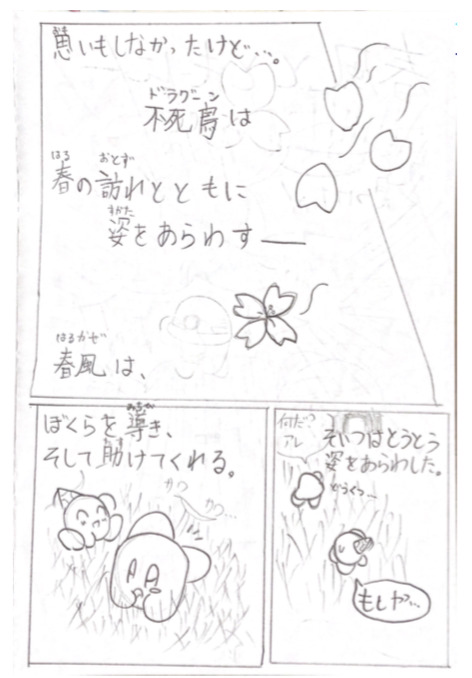 思いもしなかったけど…。
ドラグーン
不死鳥は
はる おとず
春の訪れとともに
すがた
姿をあらわす――
はるかぜ
春風は、
そいつはとうとう
姿をあらわした。
どうくつ…
何だ?
アレ
もしや…
みちび
ぼくらを導き、
たす
そして助けてくれる。